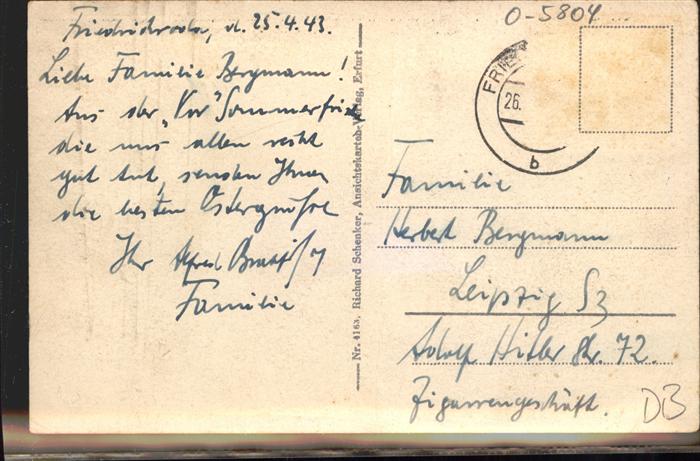 Friedrichroda, d. 25.4.43.
Liebe Familie Bergmann!
Aus der „Vor"Sommerfrische
die uns allen recht
gut tut, senden Ihnen
die besten Ostergrüße
Ihr Alfred
Familie
Nr. 4163, Richard Schenker, Ansichtskarten-Verlag, Erfurt
O-5804
FRIE
26.
b
Familie
Herbert Bergmann
Leipzig S3
Adolf Hitler Str. 72.
Zigarrengeschäft.
DB